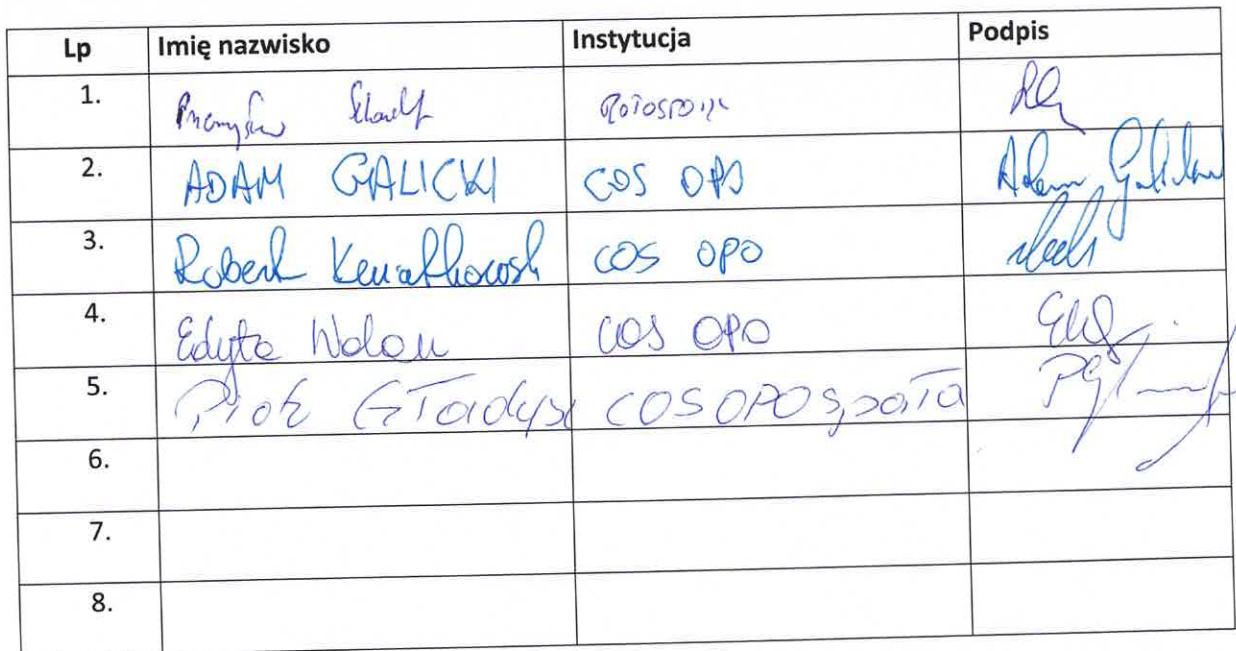 Lp Imię nazwisko Instytucja Podpis
1.
2. ADAM GALICKI COS OPO Adam Galicki
3. Robert Kwiatkowski COS OPO
4. Edyta Wolan COS OPO
5. Piotr Gładysz COS OPO Spała
6.
7.
8.